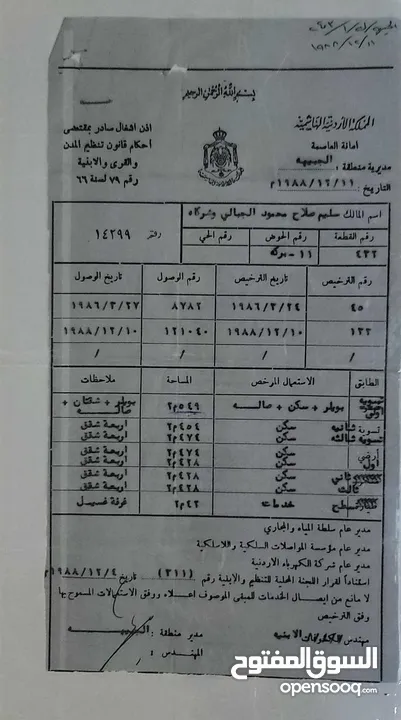 ١٩٨٨/١٢/١١
بسم الله الرحمن الرحيم
المملكة الأردنية الهاشمية
أمانة العاصمة
مديرية منطقة : الجبيهه
التاريخ : ١٩٨٨/١٢/١١م
اذن اشغال صادر بمقتضى
أحكام قانون تنظيم المدن
والقرى والابنية
رقم ٧٩ لسنة ٦٦
اسم المالك سليم صلاح محمود الجبالي وشركاه
رقم ١٤٢٩٩
رقم القطعة رقم الحوض رقم الحي
٤٣٢ ١١ - بركه
رقم الترخيص تاريخ الترخيص رقم الوصول تاريخ الوصول
٤٥ ١٩٨٦/٣/٢٤ ٨٧٨٢ ١٩٨٦/٣/٢٧
١٣٢ ١٩٨٨/١٢/١٠ ١٢١٠٤٠ ١٩٨٨/١٢/١٠
/ / / /
الطابق الاستعمال المرخص المساحة ملاحظات
تسوية أولى بويلر + سكن + صاله ٥٤٩م٢ بويلر + شقتان + صاله
تسوية ثانيه سكن ٤٥٤م٢ اربعة شقق
تسوية ثالثه سكن ٤٧٤م٢ اربعة شقق
أرضي سكن ٤٧٤م٢ اربعة شقق
أول سكن ٤٢٨م٢ اربعة شقق
ثاني سكن ٤٢٨م٢ اربعة شقق
ثالث سكن ٤٢٨م٢ اربعة شقق
سطح خدمات ٤٢م٢ غرفة غسيل
مدير عام سلطة المياه والمجاري
مدير عام مؤسسة المواصلات السلكية واللاسلكية
مدير عام شركة الكهرباء الاردنية
استناداً لقرار اللجنة المحلية للتنظيم والابنية رقم (٣١١) تاريخ ١٩٨٨/١٢/٤م
لا مانع من ايصال الخدمات للمبنى الموصوف اعلاه ووفق الاستعمالات المسموح بها
وفق الترخيص
مهندس الابنيه
مدير منطقة :
المهندس :
السوق المفتوح
opensooq.com